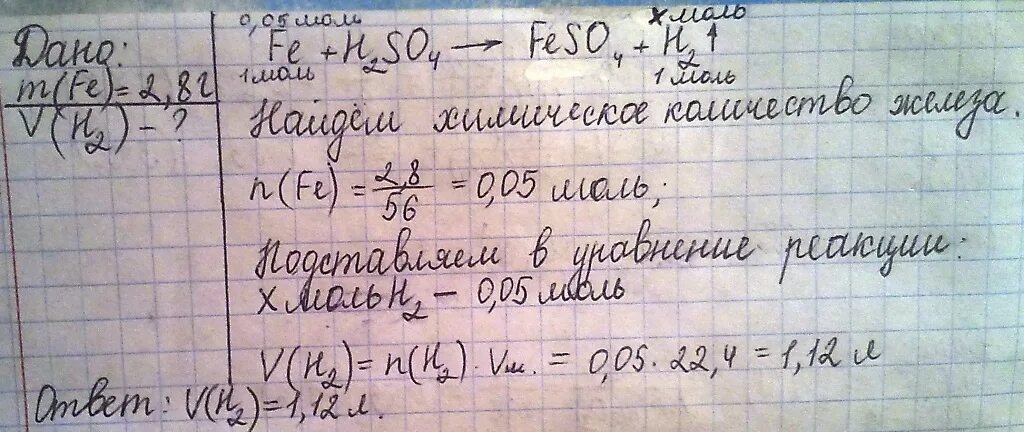 0,05 моль x моль
Дано: Fe + H₂SO₄ → FeSO₄ + H₂↑
1 моль 1 моль
m(Fe) = 2,8г
V(H₂) - ?
Найдём химическое количество железа.
n(Fe) = 2,8/56 = 0,05 моль;
Подставляем в уравнение реакции:
x моль H₂ – 0,05 моль
V(H₂) = n(H₂) · Vм. = 0,05 · 22,4 = 1,12 л
Ответ: V(H₂) = 1,12 л.